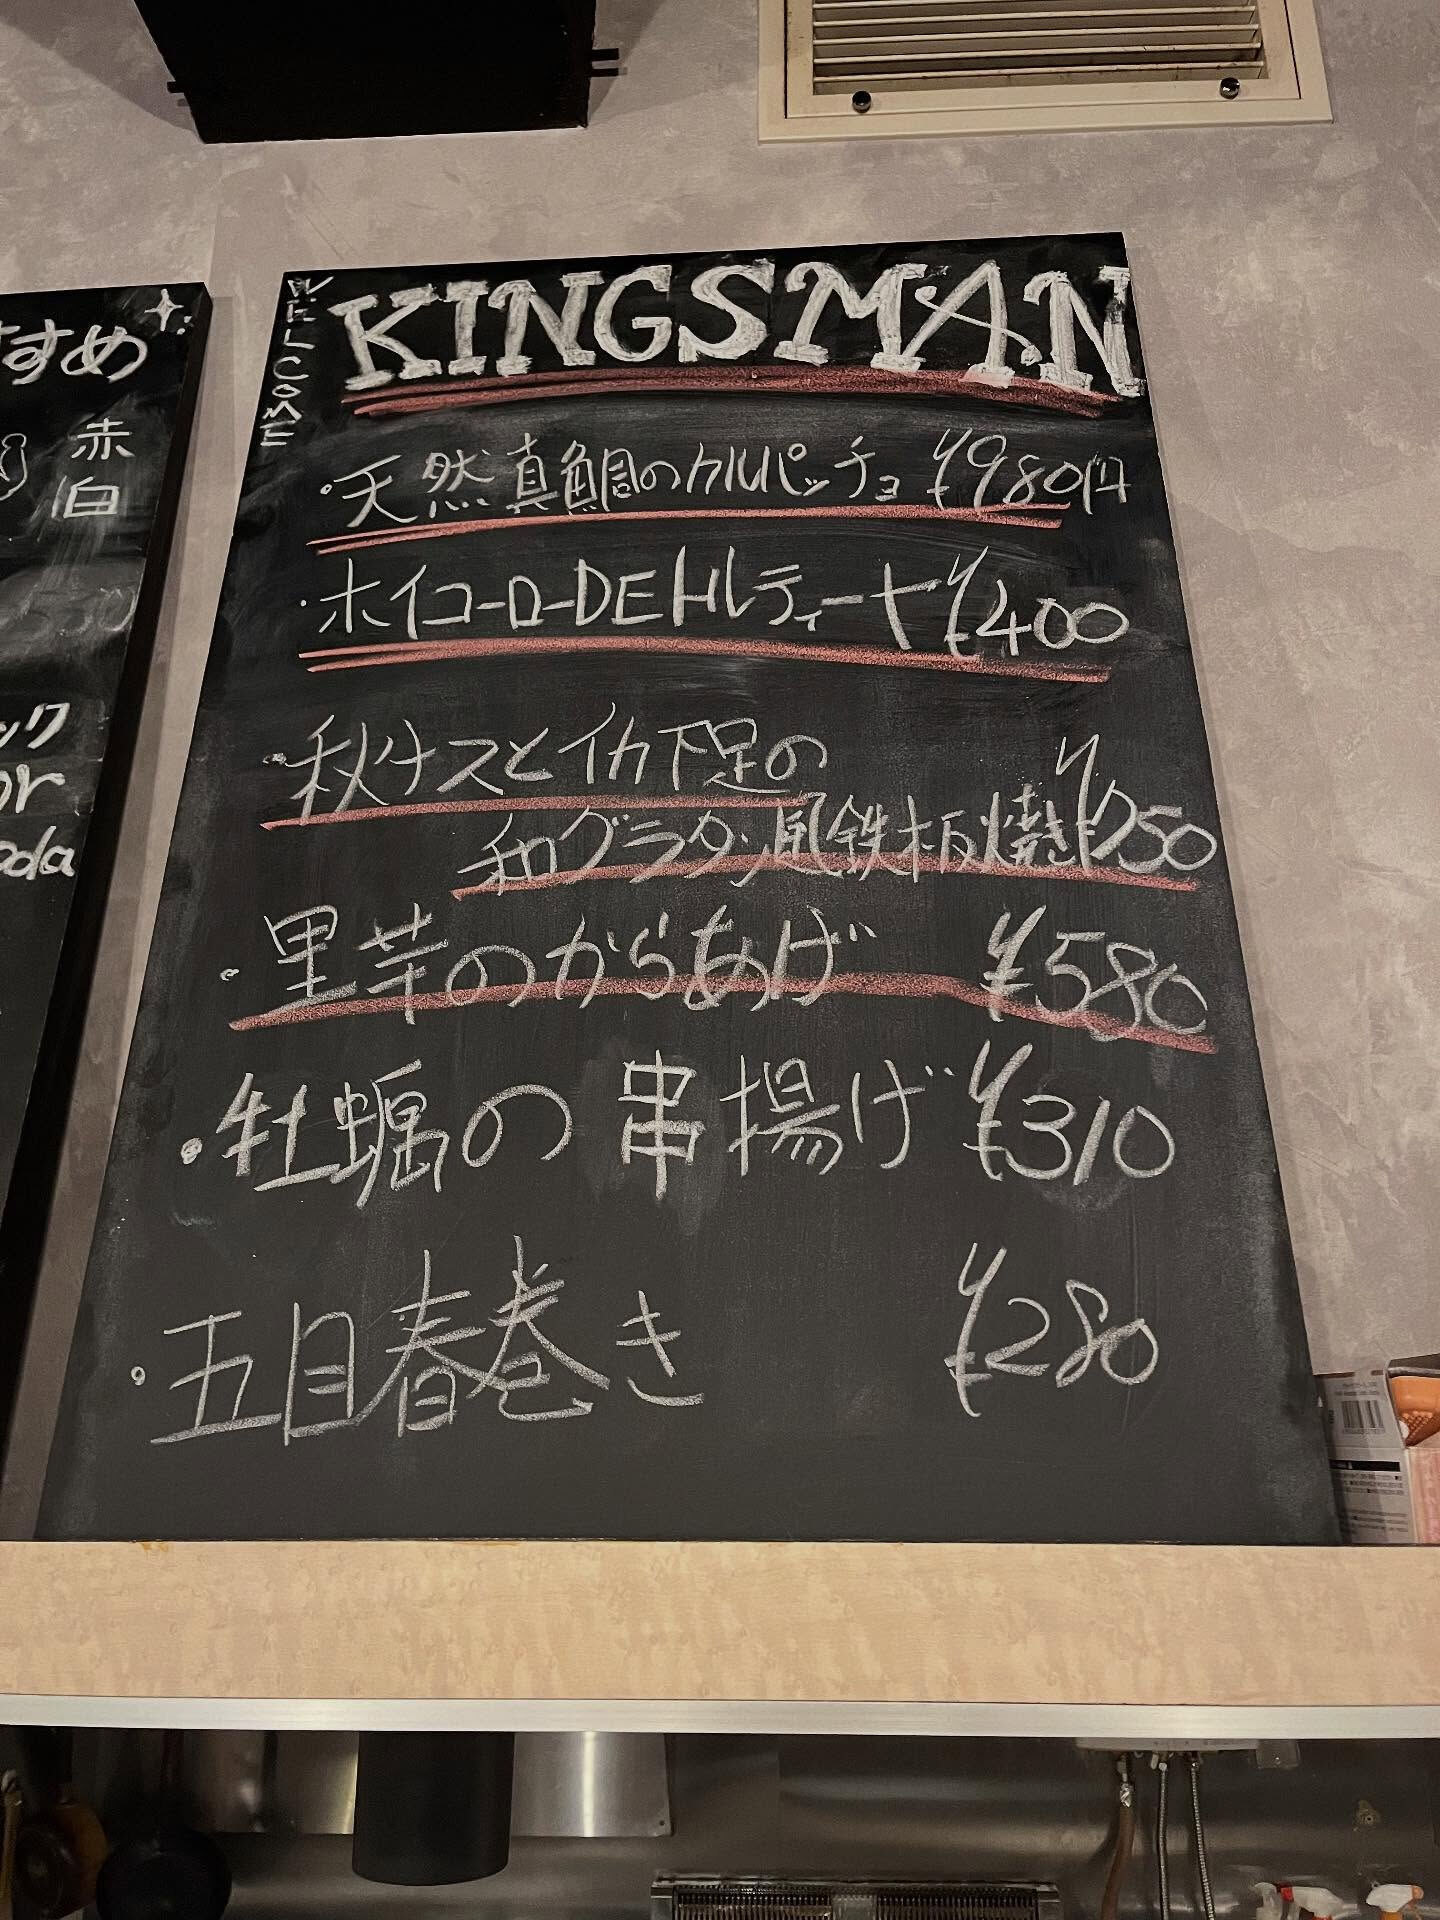 WELCOME
KINGSMAN
・天然真鯛のカルパッチョ ¥980円
・ホイコーローDEトルティーヤ ¥400
・秋ナスとイカ下足の
和グラタン風鉄板焼き ¥750
・里芋のからあげ ¥580
・牡蠣の串揚げ ¥310
・五目春巻き ¥280
すすめ
赤
白
ック
or
oda